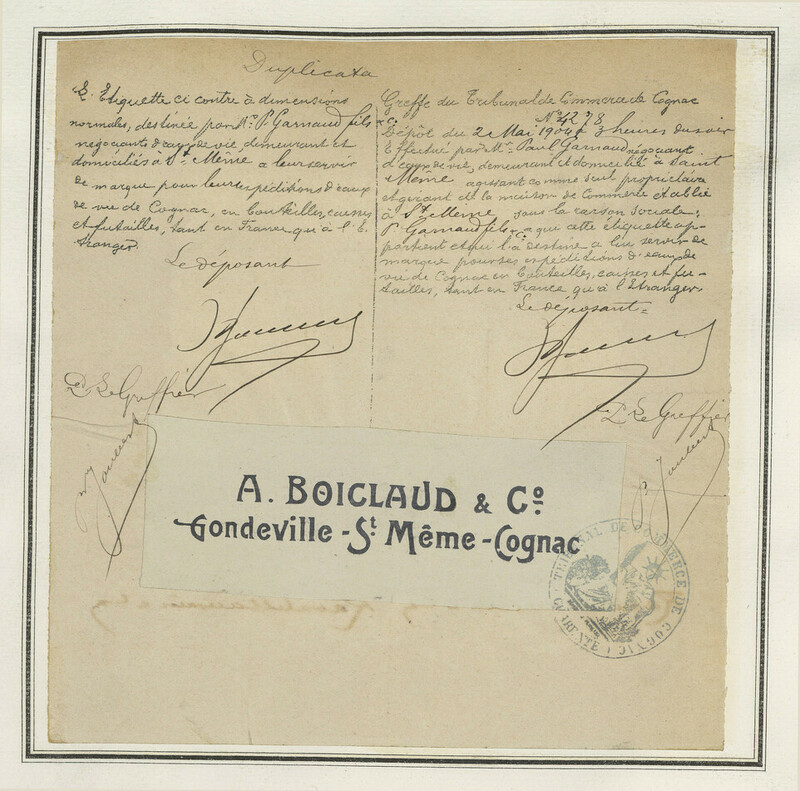 Duplicata
L'Etiquette ci contre à dimensions
normales, destinée par Mr. P. Garnaud fils & Cie
négociants d'eaux de vie, demeurant et
domiciliés à St Même a leur servir
de marque pour leurs expéditions d'eaux
de vie de Cognac, en bouteilles, caisses
et futailles, tant en France qu'à l'E-
tranger.
Le déposant
Le Greffier
Greffe du Tribunal de Commerce de Cognac
No 4278
Dépôt du 2 Mai 1904 3 heures du soir
Effectué par Mr. Paul Garnaud négociant
d'eaux de vie, demeurant et domicilié à Saint
Même agissant comme seul propriétaire
et gérant de la maison de Commerce établie
à St Même, sous la raison sociale:
P. Garnaud fils & Cie a que cette étiquette ap-
partient et qui l'a destine a lui servir de
marque pour ses expéditions d'eaux de
vie de Cognac en bouteilles, caisses et fu-
tailles, tant en France qu'à l'Etranger.
Le déposant
Le Greffier
A. BOICLAUD & Co.
Gondeville - St Même - Cognac
TRIBUNAL DE COMMERCE DE COGNAC (CHARENTE)